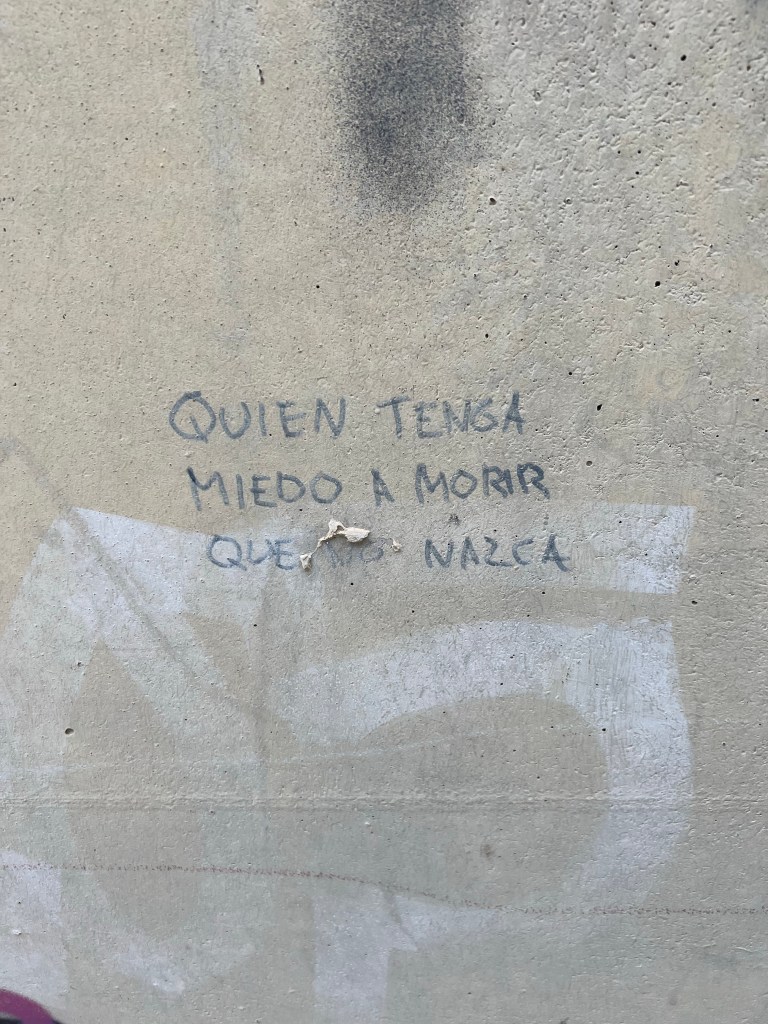 QUIEN TENGA
MIEDO A MORIR
QUE NO NAZCA